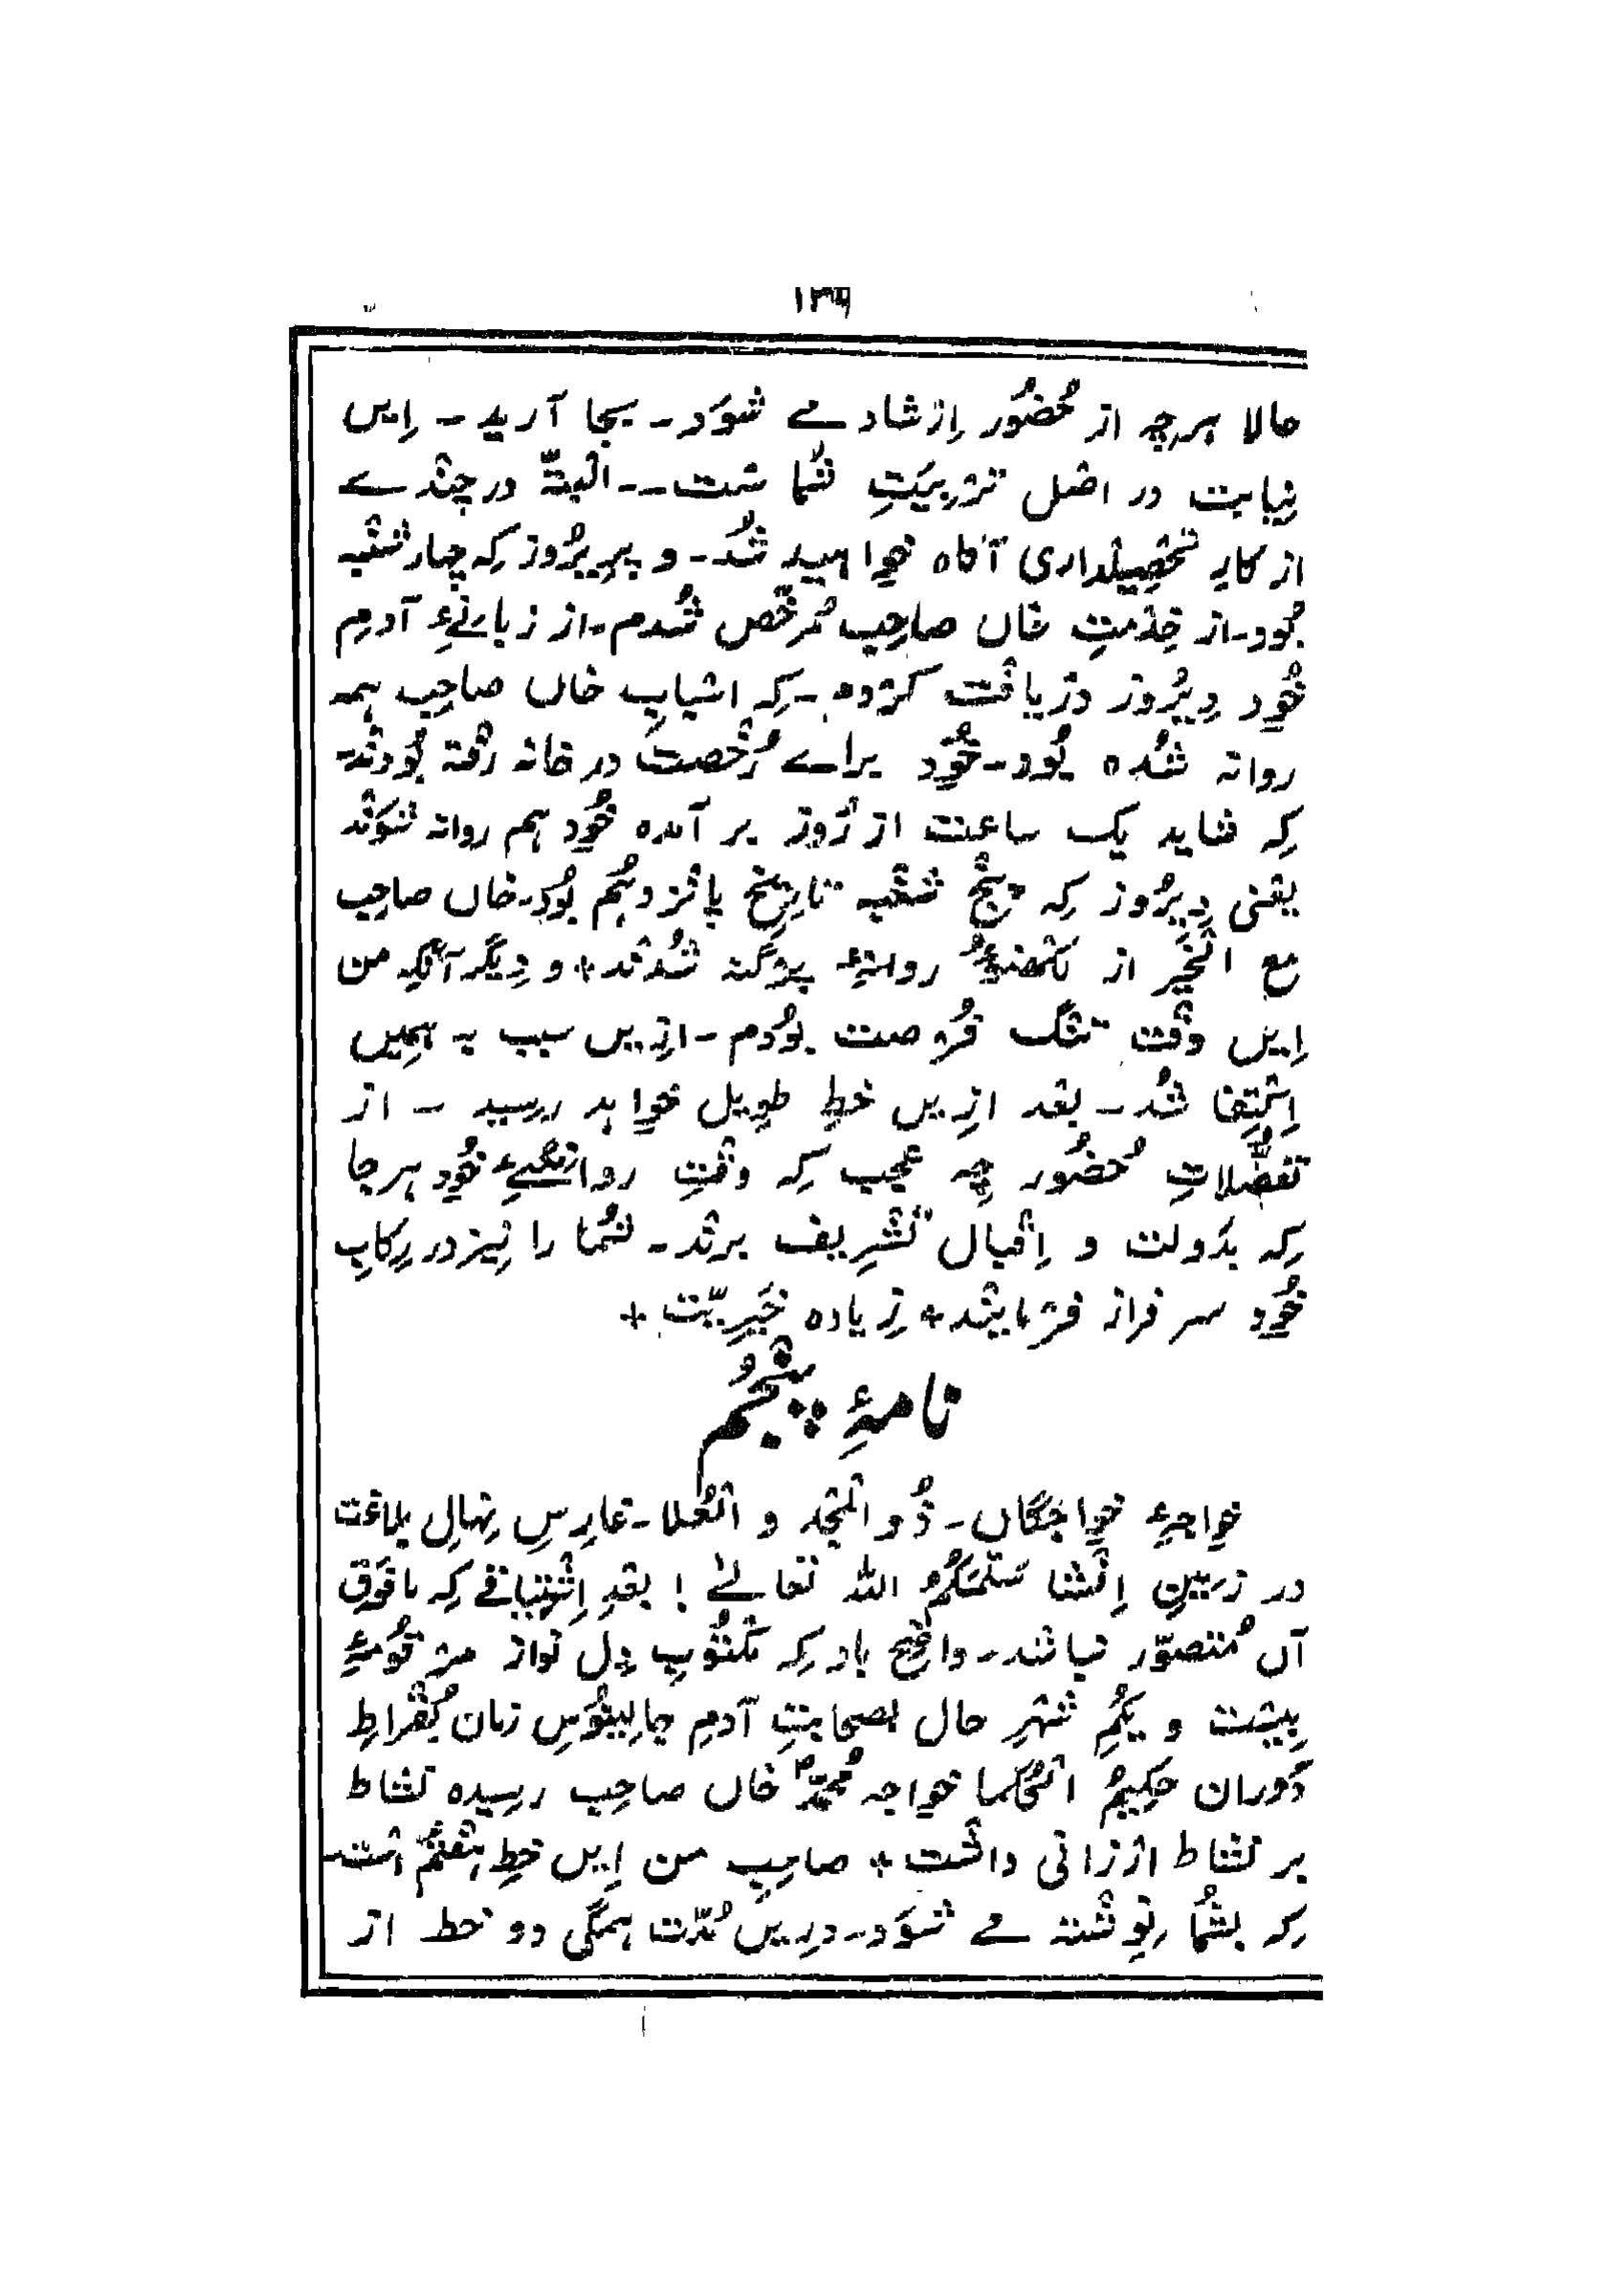 ۱۳۹
حالا ہرچہ از حُضُور اِرْشاد مے شوَد ـ بجا آرید ـ اِیں
نِیابت در اصْل تَرْبِیَتِ شُما سْت ـ ـ الْبتّہ در چنْدے
از کارِ تحْصِیلداری آگاہ خواہید شُد ـ و پرِیرُوز کِہ چہار شنْبہ
بُود ـ از خِدْمتِ خاں صاحِب مُرخّص شُدم ـ از زبانیٔ آدمِ
خُود دِیرُوز درْیافْت کرْدم ـ کِہ اسْبابِ خاں صاحِب ہمہ
روانہ شُدہ بُود ـ خُود براے رُخْصت در خانہ رفْتہ بُودنْد
کِہ شاید یک ساعت از رُوز بر آمدہ خُود ہم روانہ شوَنْد
یعْنی دِیرُوز کِہ پنْج شنْبہ تارِیخ پانْزدہُم بُود ـ خاں صاحِب
مع الْخَیر از لکْھنؤُ روانۂ پرْگنہ شُدنْد + و دِیگر آنکِہ من
اِیں وقْت تنْگ فُرْصت بُودم ـ ازِیں سبب بہ ہمِیں
اِکْتِفا شُد ـ بعْد ازِیں خطِ طوِیل خواہد رسِید ـ از
تفضُّلاتِ حُضُور چِہ عجب کِہ وقْتِ روانْگیٔ خُود ہر جا
کِہ بدَولت و اِقْبال تشْرِیف برنْد ـ شُما را نِیز در رِکابِ
خُود سر فراز فرْمایند + زِیادہ خَیرِیّت +
نامۂ پنْجُم
خواجۂ خواجگاں ـ ذُو الْمجْد و الْعُلا ـ غارِسِ نِہالِ بلاغت
در زمِینِ اِنْشا سلّمکُمُ اللہ تعالےٰ ! بعْدِ اِشْتِیاقے کِہ مافَوقِ
آں مُتصوّر نباشد ـ واضِح باد کِہ مکْتُوبِ دِل نواز مرْقُومۂ
بِیسْت و یکُمِ شہْرِ حال بصحابتِ آدمِ جالِینُوسِ زمان بُقْراطِ
دَوران حکِیمُ الْحُکما خواجہ مُحمّد خاں صاحِب رسِیدہ نشاط
بر نشاط ارْزانی داشْت + صاحِبِ من اِیں خطِ ہفْتُم اسْت ـ
کِہ بشُما نوِشْتہ مے شوَد ـ درِیں مُدّت ہمگی دو خط از